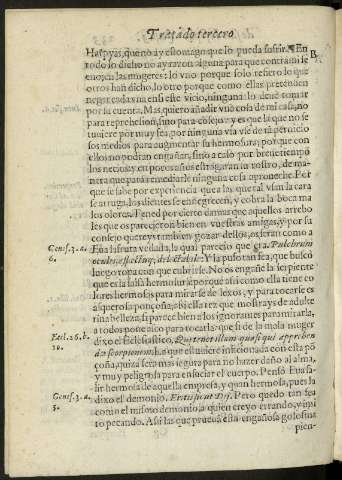 Tratado tercero
Harpyas, que no ay estomago que lo pueda sufrir. ¶ En
todo lo dicho no ay razon alguna para que contra mi se
enojen las mugeres: lo vno porque solo refiero lo que
otros han dicho, lo otro porque como ellas pretenden
negar cada vna en si este vicio, ninguna lo deue tomar
por su cuenta. Mas quiero añadir vna cosa de mi casa, no
para reprehension, sino para consejo: y es que la que no se
tuuiere por muy fea, por ninguna via vse de
sos medios para augmentar su hermosura; porque con
ellos no podran engañar, sino a caso por breue tiempo
los necios: y en pocos años el rostro, de ma-
nera que para remediarle ninguna cosa aproueche. Por
que se sabe por experiencia que a las que tal vsan la cara
se arruga, los dientes se ennegrecen, y cobra la boca ma
los olores. Tened por cierto damas que aquellos arrebo
les que os parecieron bien en vuestras amigas, y por su
consejo quereys tambien gozar dellos, os seran como a
Eua la fruta vedada, la qual parecio que era. Pulchrum
Genes. 3. a.
6.
oculis, aspectuque delectabile: Y la puso tan fea, que buscò
luego ropa con que cubrirse. No os engañe la serpiente
que es la falsa hermosura: porque assi como ella tiene co
lores hermosos para mirarse de lexos, y para tocarle es
asquerosa ponçoña, assi ella rez que mostrays de adulte
rina belleza, si parece bien a los ignorantes para mirarla,
a todos pone asco para tocarla: que si de la mala muger
Eccl. 26. b.
10.
dixo el Ecclesiastico, Qui tenet illam quasi qui apprehen
dit scorpionem. La que estuuiere inficionada con esta pō
çoña, quiza sera mas segura para no hazer daño al alma,
y muy peligrosa para ensuciar el cuerpo. Pensò Eua sa-
lir hermosa de aquella empresa, y quan hermosa, pues la
Genes. 3. a.
5.
dixo el demonio. Eritis sicut Dij. Pero quedo tan fea
como el mismo demonio, a quien creyo errando, y imi
tò pecando. Assi las que prueuan esta engañosa golosina
pien-